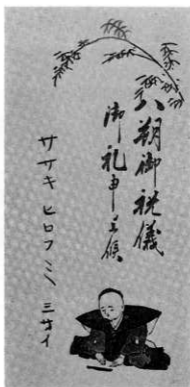 八朔御祝儀
御礼申上候
ササキヒロフミ 三才